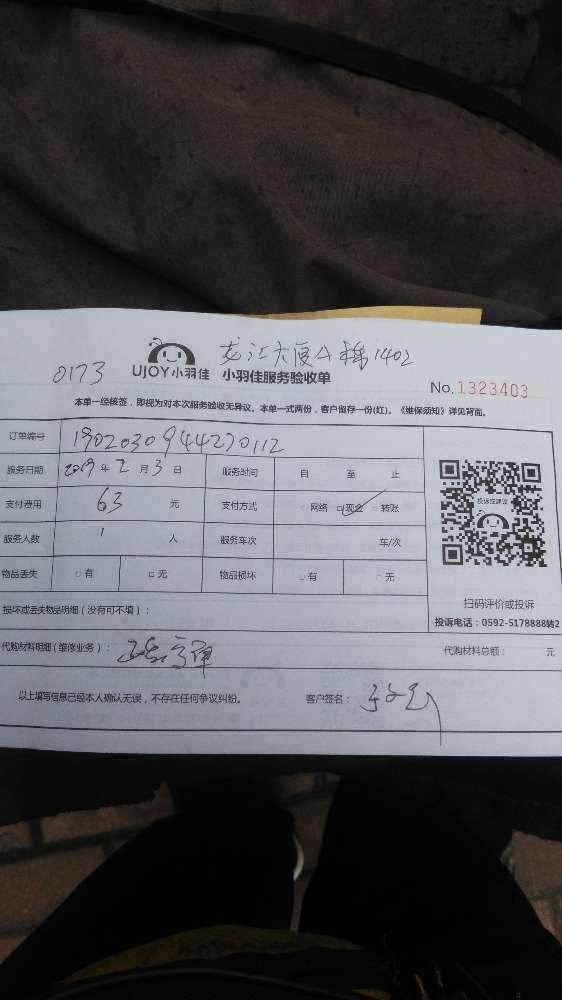 龙江大厦A栋1402
0173
UJOY小羽佳 小羽佳服务验收单
No.1323403
本单一经核签，即视为对本次服务验收无异议。本单一式两份，客户留存一份(红)。《维保须知》详见背面。
订单编号 1902030944270112
服务日期 2019年2月3日 服务时间 自 至 止
支付费用 63 元 支付方式 □网络 □现金 □转账
服务人数 1 人 服务车次 车/次
物品丢失 □有 □无 物品损坏 □有 □无
投诉或建议
扫码评价或投诉
投诉电话：0592-5178888转2
损坏或丢失物品明细（没有可不填）：
代购材料明细（维修业务）： 代购材料总额： 元
以上填写信息已经本人确认无误，不存在任何争议纠纷。 客户签名：